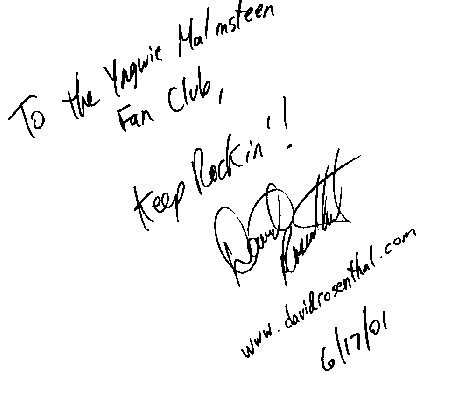 To the Yngwie Malmsteen
Fan Club,
Keep Rockin'!
David
Rosenthal
www.davidrosenthal.com
6/17/01